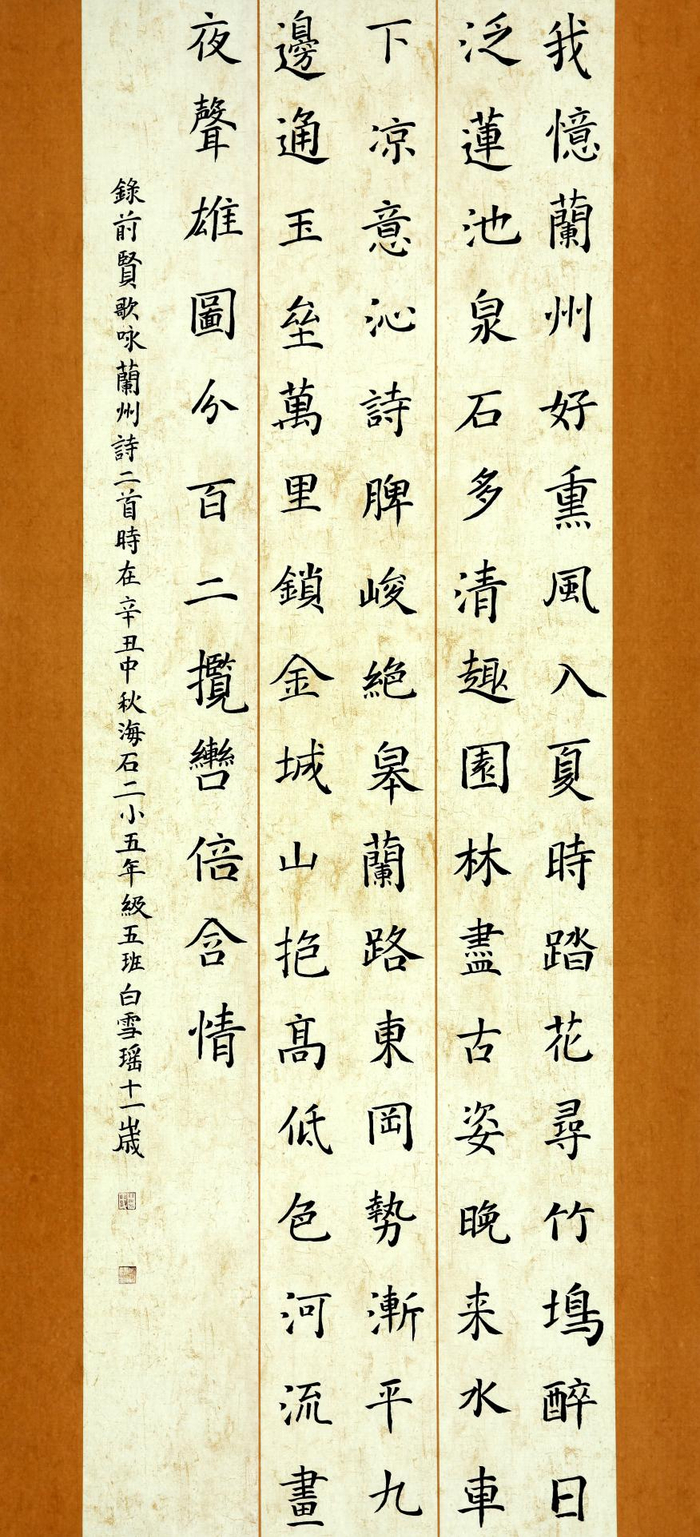 我憶蘭州好熏風入夏時踏花尋竹塢醉日
泛蓮池泉石多清趣園林盡古姿晚来水車
下凉意沁詩脾峻絕皋蘭路東岡勢漸平九
邊通玉壘萬里鎖金城山抱高低色河流晝
夜聲雄圖分百二攬轡倍含情
錄前賢歌咏蘭州詩二首時在辛丑中秋海石二小五年級五班白雪瑶十一歲